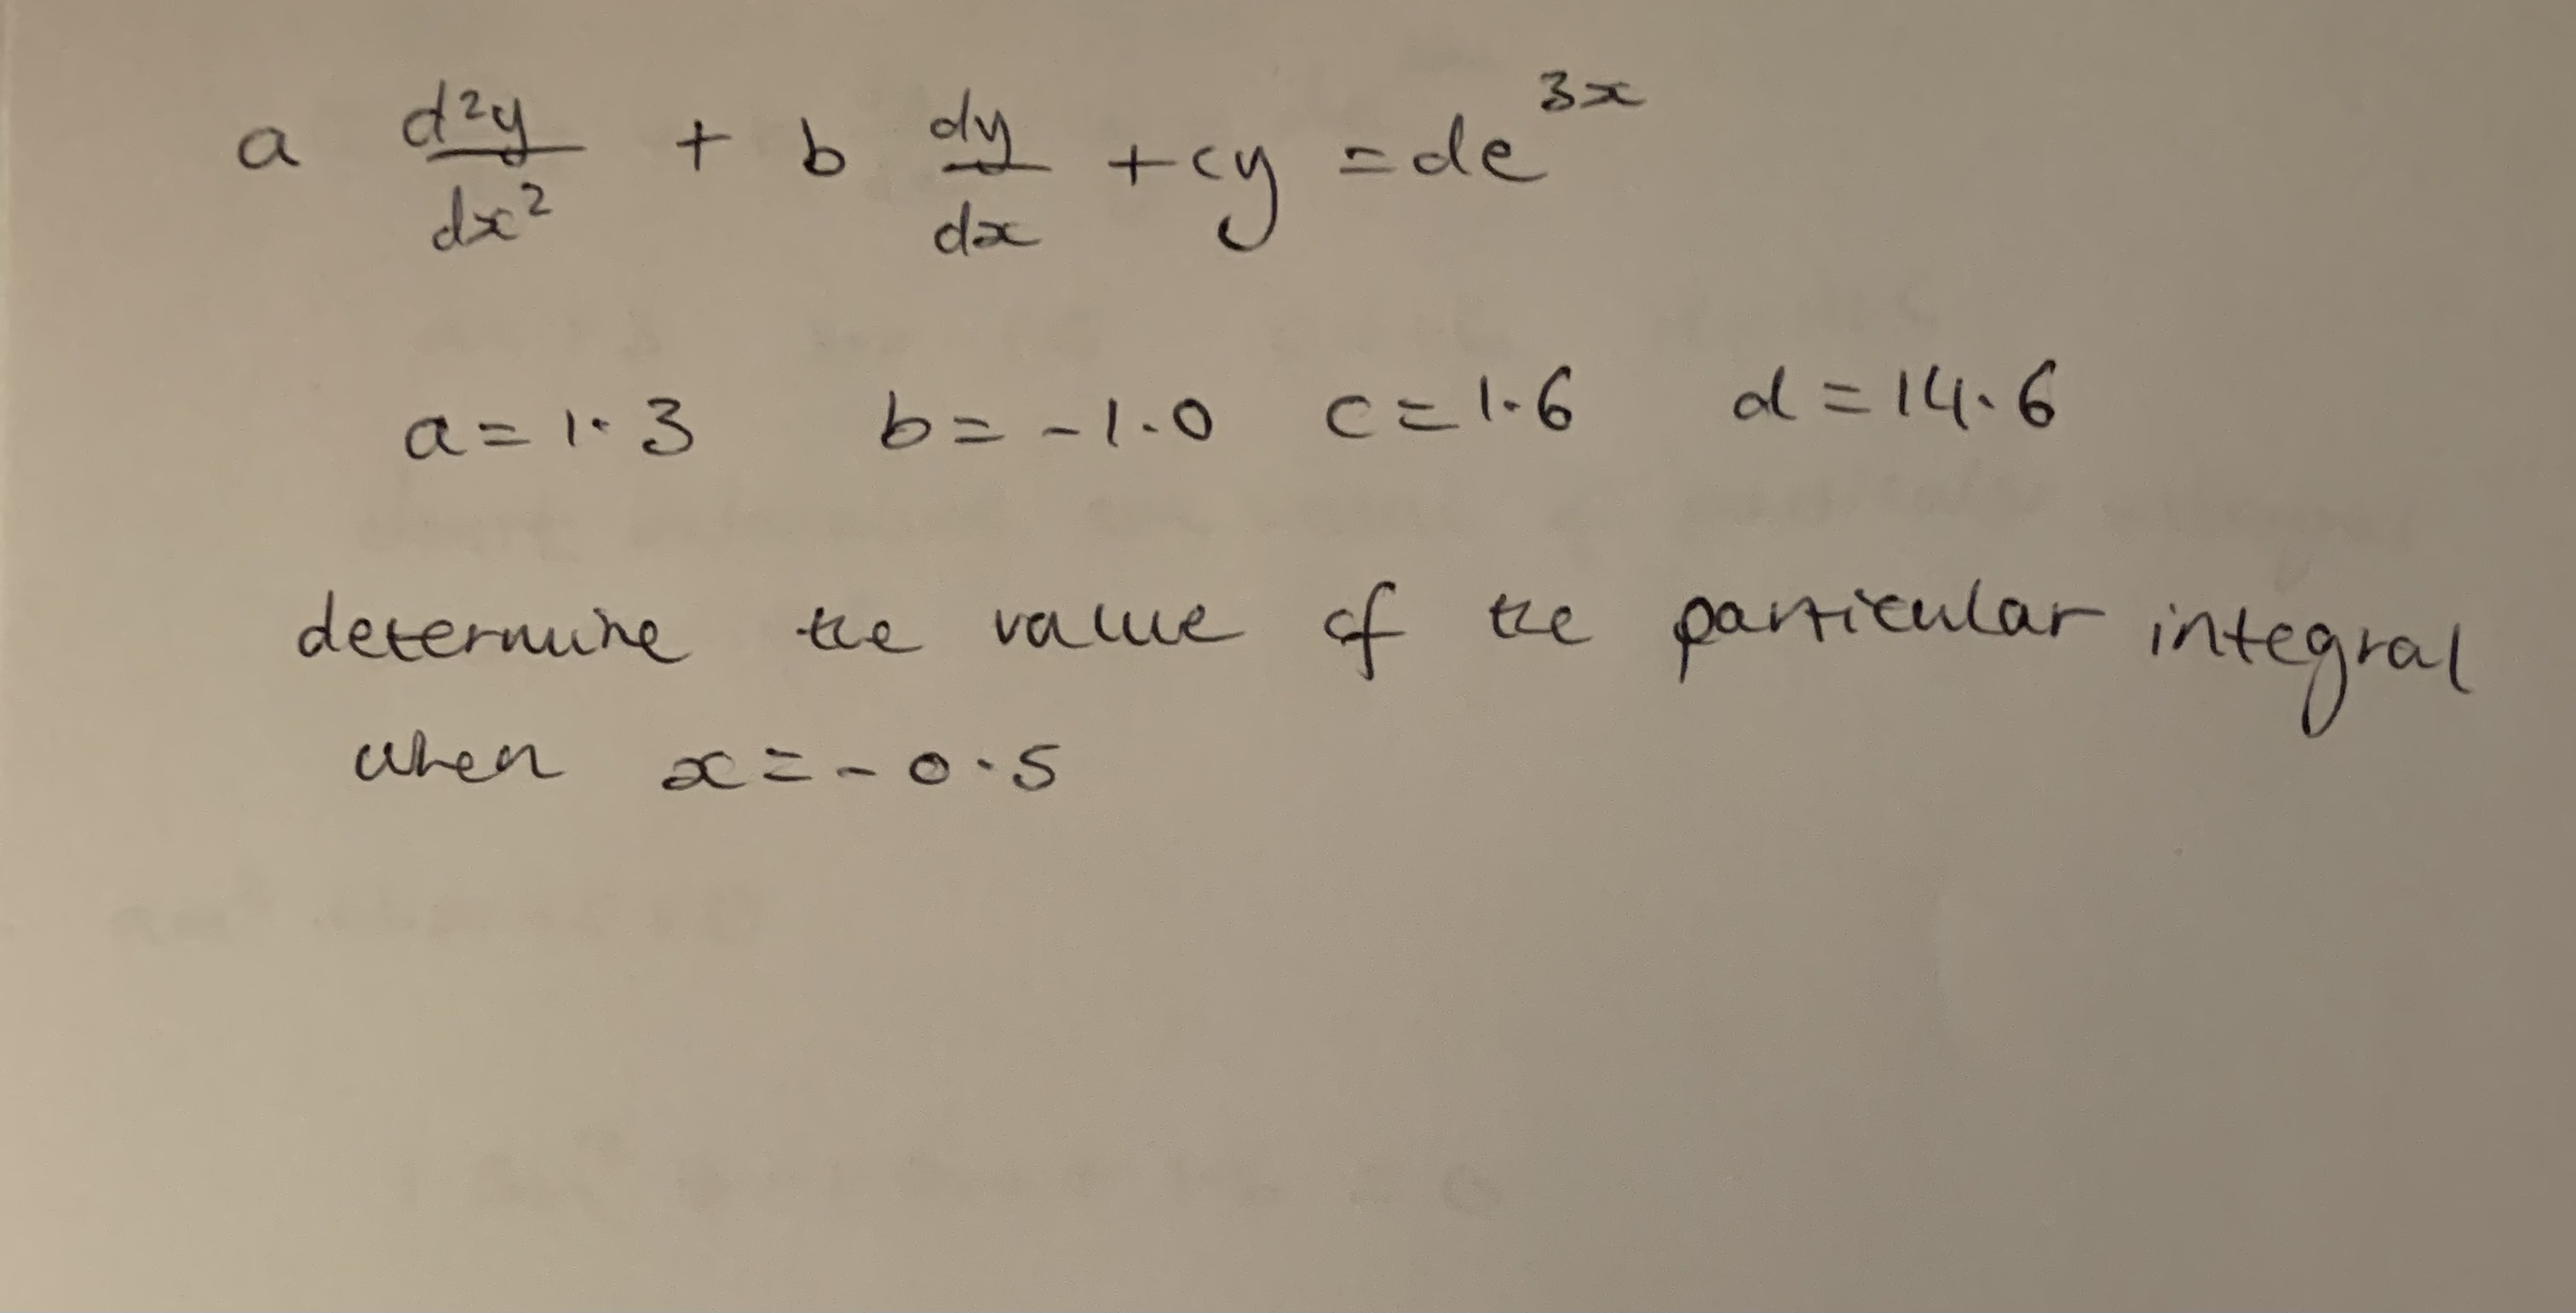 a d²y/dx² + b dy/dx + cy = de^3x
a = 1.3 b = -1.0 c = 1.6 d = 14.6
determine the value of the particular integral
when x = -0.5